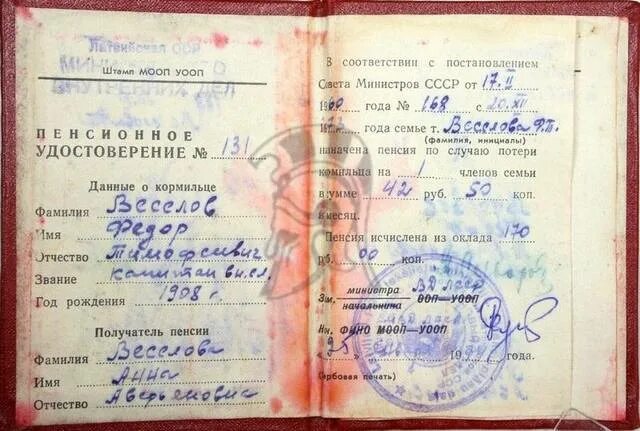 Латвийская ССР
МИНИСТЕРСТВО
ВНУТРЕННИХ ДЕЛ
Штамп МООП УООП
ПЕНСИОННОЕ
УДОСТОВЕРЕНИЕ № 131
Данные о кормильце
Фамилия Веселов
Имя Федор
Отчество Тимофеевич
Звание капитан вн.сл.
Год рождения 1908 г.
Получатель пенсии
Фамилия Веселова
Имя Анна
Отчество Аверьяновна
В соответствии с постановлением
Совета Министров СССР от 17.II
1960 года № 168 с 20.XII
1972 года семье т. Веселова Ф.Т.
(фамилия, инициалы)
назначена пенсия по случаю потери
кормильца на 1 членов семьи
в сумме 42 руб. 50 коп.
в месяц.
Пенсия исчислена из оклада 170
рб. 00 коп.
министра ВД ЛССР
Зм. начальника ООП—УООП
Нч. ФИНО МООП—УООП
"25" 19 года.
(гербовая печать)